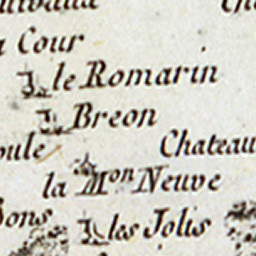 Cour
le Romarin
Breon
Chateau
la Mon Neuve
les Jolis